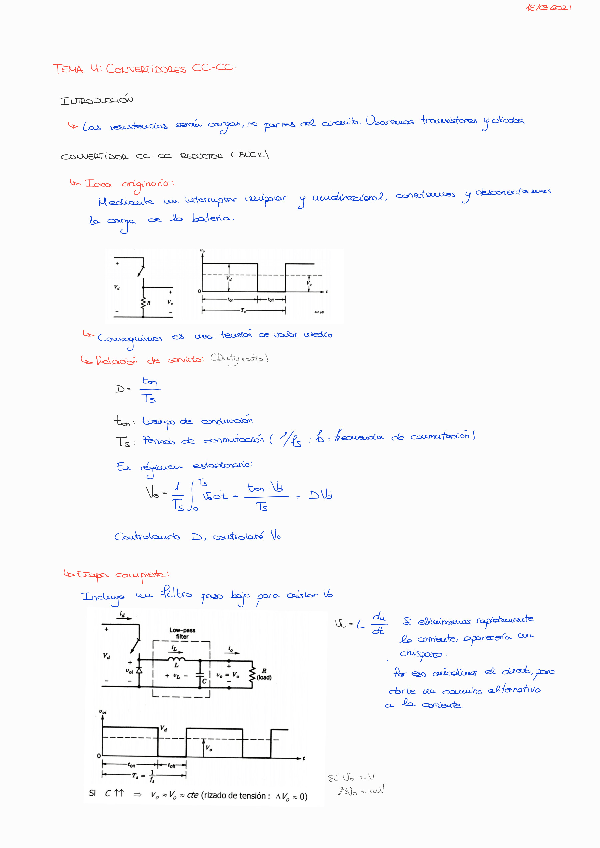 TEMA 4: CONVERTIDORES CC-CC
INTRODUCCIÓN
↳ Las resistencias serán cargas, no partes del circuito. Usaremos transistores y diodos
CONVERTIDOR CC CC REDUCTOR (BUCK)
↳ Idea originaria:
Mediante un interruptor unipolar y unidireccional, conectamos y desconectamos
la carga de la batería.
+ +
V_d R V_o
- -
v_o
V_d V_o
0 t
t_on t_off
T_s
↳ Conseguimos es una tensión de valor medio
↳ Relación de servicio: (Duty ratio)
D = t_on / T_s
t_on: tiempo de conducción
T_s: Período de conmutación (1/f_s ; f_s: frecuencia de conmutación)
En régimen estacionario:
V_o = 1/T_s ∫_0^T_s v_o dt = t_on V_d / T_s = D V_d
Controlando D, controlaré V_o
↳ Etapa completa:
Incluye un filtro paso bajo para
i_d
Low-pass
filter
i_L i_o
+ L +
V_d v_oi + v_L - C v_o ≈ V_o R (load)
- -
v_L = L di_L/dt
Si eliminamos rápidamente
la corriente, aparecería un
chispazo.
Por eso metemos el diodo, para
darle un camino alternativo
a la corriente
v_oi
V_d
V_o
0 t
t_on t_off
T_s = 1/f_s
Si C ↑↑ ⇒ v_o ≈ V_o ≈ cte (rizado de tensión : ΔV_o ≈ 0)